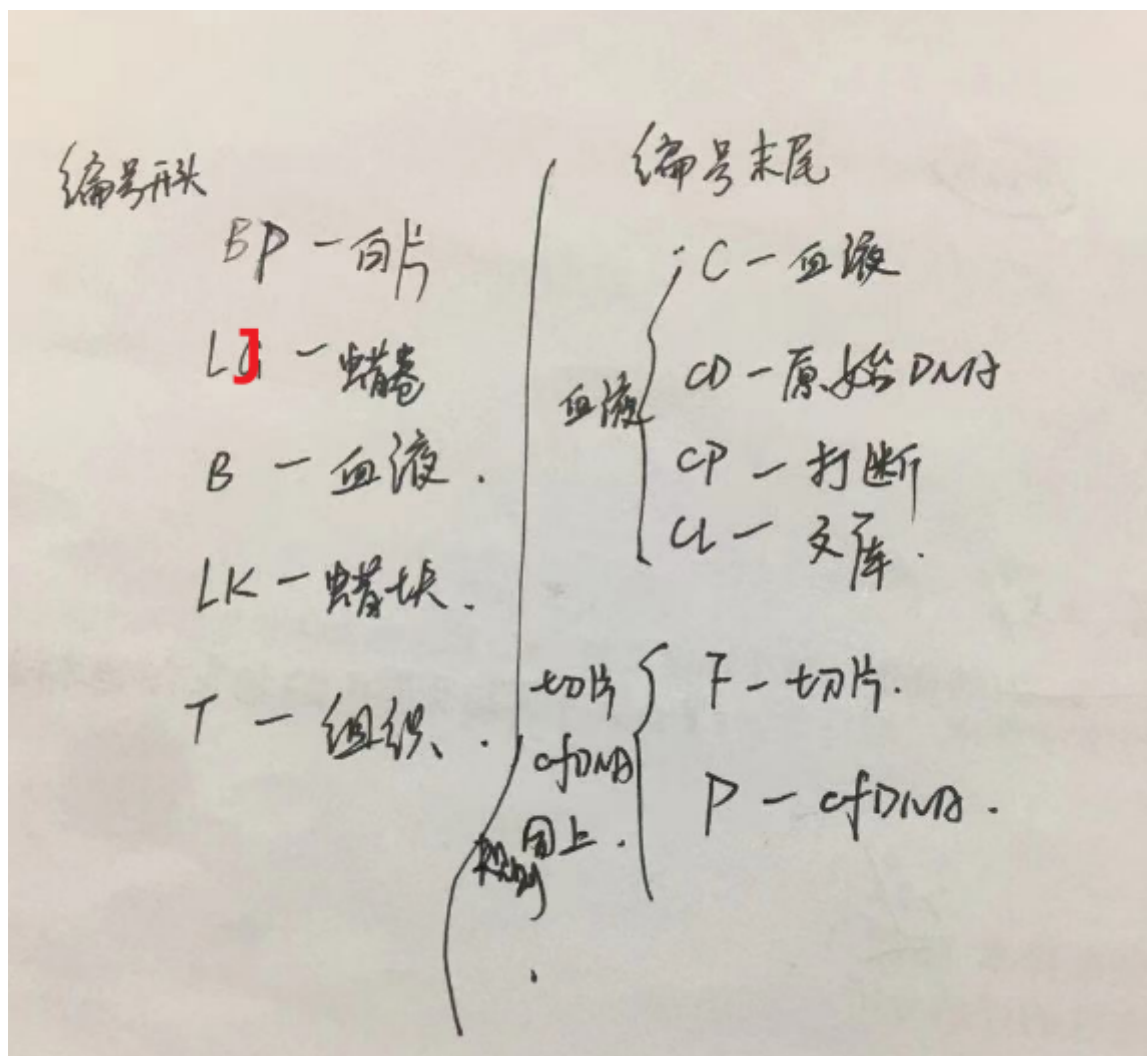 编号开头
BP - 白片
LJ - 蜡卷
B - 血液.
LK - 蜡块.
T - 组织.
编号末尾
血液
C - 血液
CD - 原始DNA
CP - 打断
CL - 文库.
切片
cfDNA
规则同上.
F - 切片.
P - cfDNA.